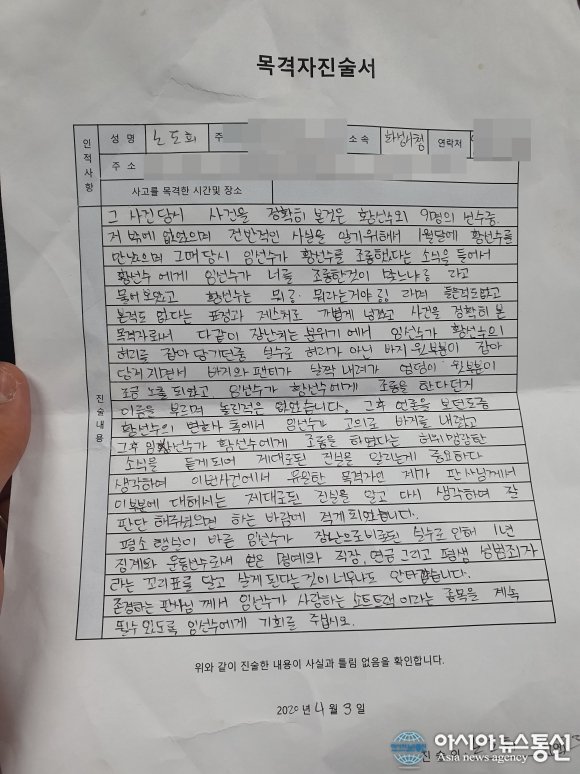 목격자진술서
인적사항
성 명 노도희 주 소 속 화성시청 연락처
주 소
사고를 목격한 시간및 장소
진술내용
그 사건 당시 사건을 정확히 본것은 황선수외 9명의 선수중
저 밖에 없었으며 전반적인 사실을 알기위해서 1월달에 황선수를
만났으며 그때 당시 임선수가 황선수를 조롱했다는 소식을 들어서
황선수 에게 임선수가 너를 조롱한것이 맞느냐 라고
물어보았고 황선수는 뭐 뭐라는거야 라며 들은적도없고
본적도 없다는 표정과 제스처로 가볍게 넘겼고 사건을 정확히 본
목격자로서 다같이 장난치는 분위기에서 임선수가 황선수의
허리를 잡아 당기던중 실수로 허리가 아닌 바지 윗부분이 잡아
당겨지면서 바지와 팬티가 살짝 내려가 엉덩이 윗부분이
조금 노출 되었고 임선수가 황선수에게 조롱을 한다던지
이름을 부르며 놀린적은 없었습니다. 그후 언론을 보던도중
황선수의 변호사 측에서 임선수가 고의로 바지를 내렸고
그후 임선수가 황선수에게 조롱을 하였다는 허위맹랑한
소식을 듣게되어 제대로된 진실을 알리는게 중요하다
생각하여 이번사건에서 유일한 목격자인 제가 판사님께서
이부분에 대해서는 제대로된 진실을 알고 다시 생각하여 잘
판단 해주셨으면 하는 바람에 적게 되었습니다.
평소 행실이 바른 임선수가 장난으로 비롯된 실수로 인해 1년
징계와 운동선수로서 얻은 명예와 직장, 연금 그리고 평생 성범죄자
라는 꼬리표를 달고 살게 된다는 것이 너무나도 안타깝습니다.
존경하는 판사님 께서 임선수가 사랑하는 쇼트트랙 이라는 종목을 계속
할수 있도록 임선수에게 기회를 주십시오.
위와 같이 진술한 내용이 사실과 틀림 없음을 확인합니다.
2020 년 4 월 3 일
진 술 인 :
아시아뉴스통신
Asia news agency